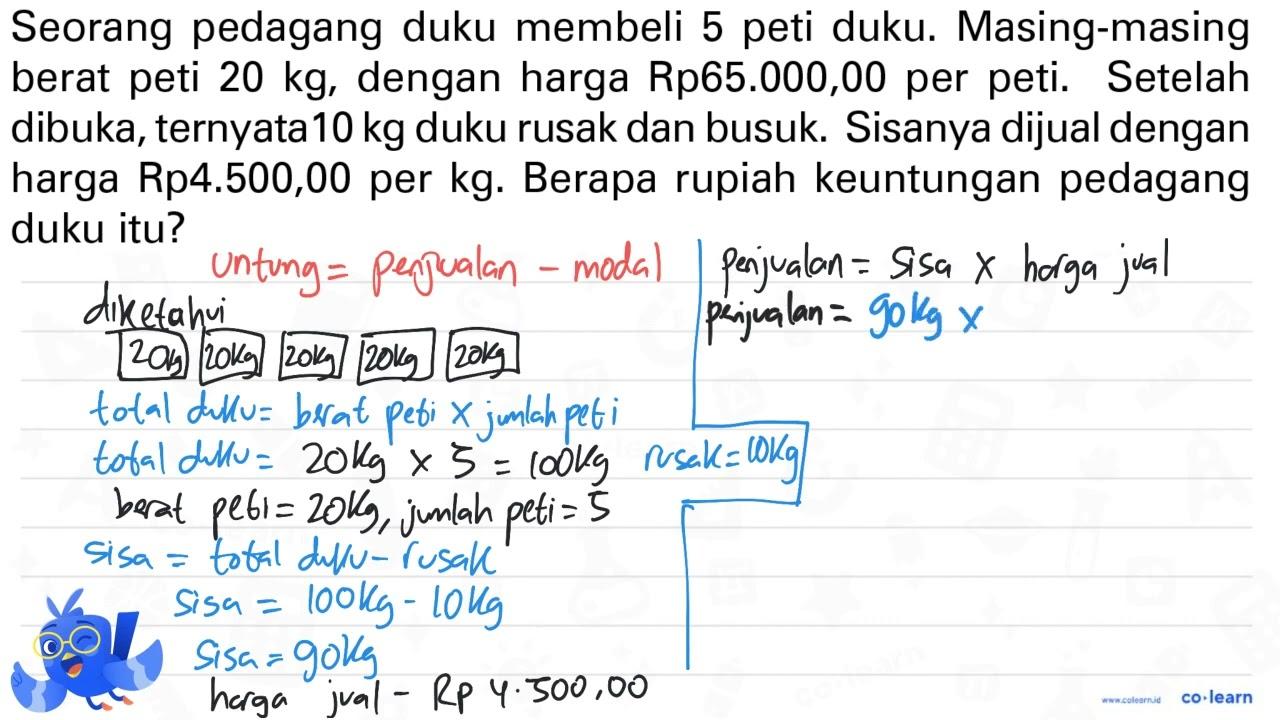 Seorang pedagang duku membeli 5 peti duku. Masing-masing
berat peti 20 kg, dengan harga Rp65.000,00 per peti. Setelah
dibuka, ternyata10 kg duku rusak dan busuk. Sisanya dijual dengan
harga Rp4.500,00 per kg. Berapa rupiah keuntungan pedagang
duku itu?
untung = penjualan - modal
diketahui
20kg 20kg 20kg 20kg 20kg
total duku = berat peti x jumlah peti
total duku = 20kg x 5 = 100kg
berat peti = 20kg, jumlah peti = 5
sisa = total duku - rusak
sisa = 100kg - 10kg
sisa = 90kg
harga jual - Rp 4.500,00
penjualan = sisa x harga jual
penjualan = 90kg x
rusak = 10kg
www.colearn.id co·learn